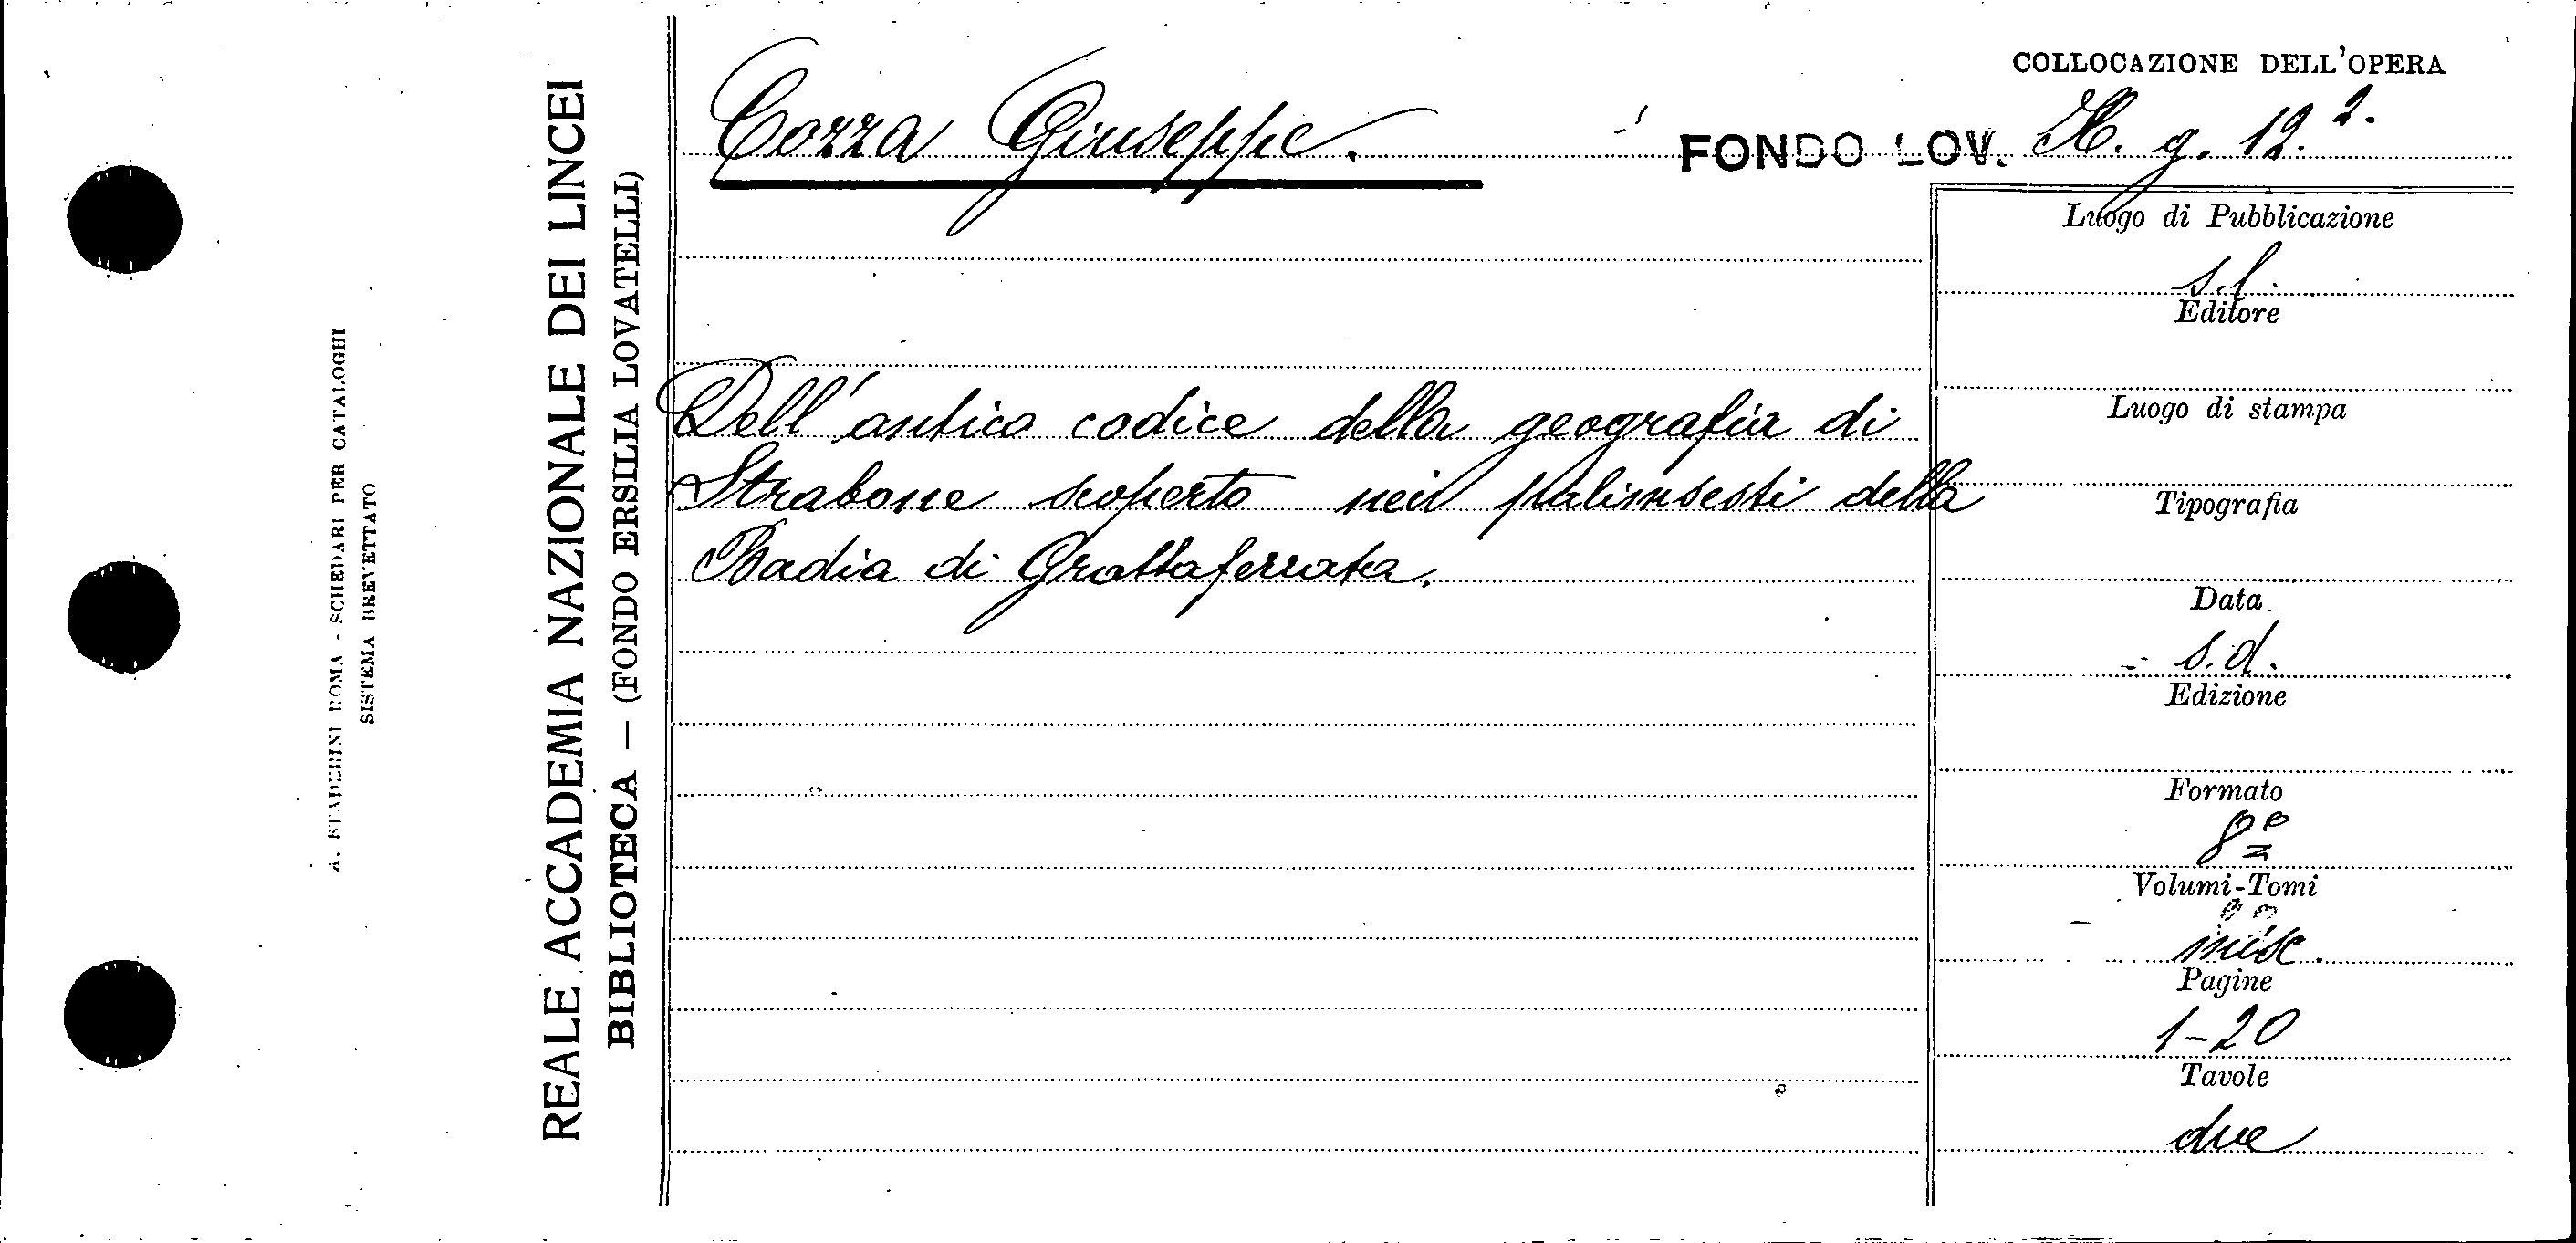 COLLOCAZIONE DELL'OPERA
Cozza Giuseppe.
FONDO LOV. H. g. 12.²·
REALE ACCADEMIA NAZIONALE DEI LINCEI
BIBLIOTECA — (FONDO ERSILIA LOVATELLI)
A. STADERINI ROMA - SCHEDARI PER CATALOGHI
SISTEMA BREVETTATO
Dell'antico codice della geografia di
Strabone scoperto nei palinsesti della
Badia di Grottaferrata.
Luogo di Pubblicazione
s.l.
Editore
Luogo di stampa
Tipografia
Data
s.d.
Edizione
Formato
8º
Volumi-Tomi
misc.
Pagine
1-20
Tavole
due